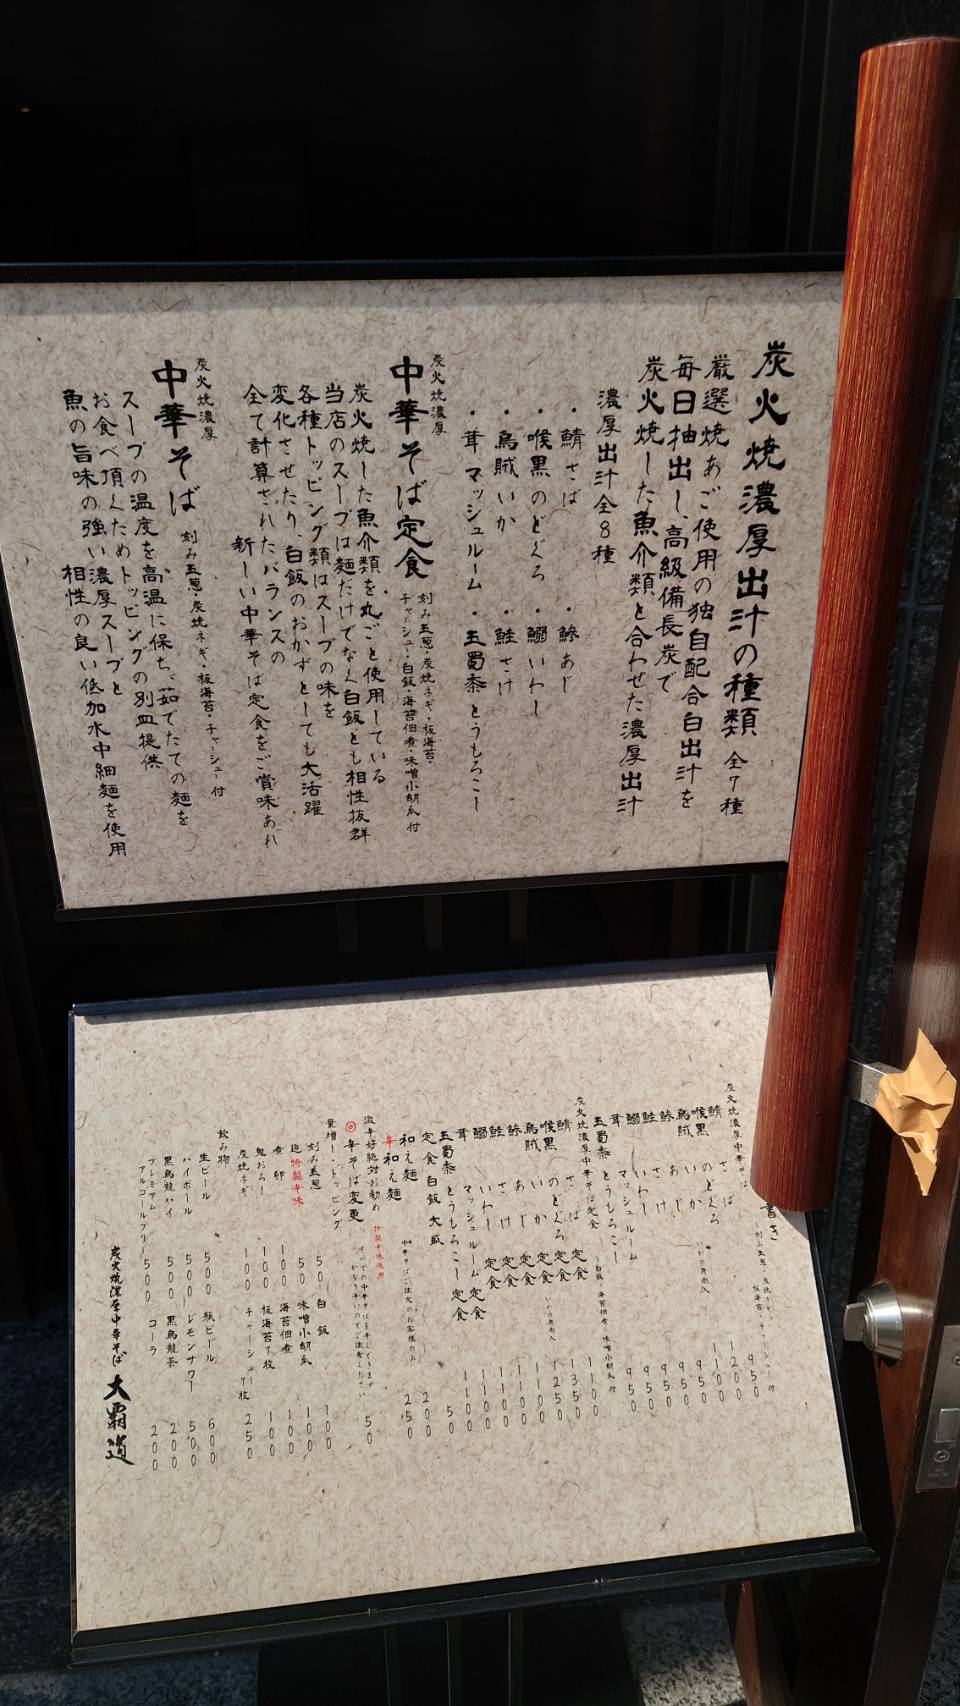 炭火焼濃厚出汁の種類 全7種
厳選焼あご使用の独自配合白出汁を
毎日抽出し、高級備長炭で
炭火焼した魚介類と合わせた濃厚出汁
濃厚出汁全8種
・鯖さば ・鯵あじ
・喉黒のどぐろ ・鰯いわし
・烏賊いか ・鮭さけ
・茸マッシュルーム ・玉蜀黍とうもろこし
炭火焼濃厚
中華そば定食
刻み玉葱・炭焼ネギ・板海苔・
チャーシュー・白飯・海苔佃煮・味噌小胡瓜付
炭火焼した魚介類を丸ごと使用している
当店のスープは麺だけでなく白飯とも相性抜群
各種トッピング類はスープの味を
変化させたり、白飯のおかずとしても大活躍
全て計算されたバランスの
新しい中華そば定食をご賞味あれ
炭火焼濃厚
中華そば
刻み玉葱・炭焼ネギ・板海苔・チャーシュー付
スープの温度を高温に保ち、茹でたての麺を
お食べ頂くためトッピングの別皿提供
魚の旨味の強い濃厚スープと
相性の良い低加水中細麺を使用
書き
炭火焼濃厚中華そば
板海苔・チャーシュー付
鯖 さば 950
喉黒 のどぐろ 1200
烏賊 いか 1100
鯵 あじ 950
鮭 さけ 950
鰯 いわし 950
茸 マッシュルーム 950
玉蜀黍 とうもろこし
炭火焼濃厚中華そば定食
白飯・海苔佃煮・味噌小胡瓜付
鯖 さば 定食
喉黒 のどぐろ 定食 1350
烏賊 いか 定食 1250
鯵 あじ 定食 1100
鮭 さけ 定食 1100
鰯 いわし 定食 1100
茸 マッシュルーム 定食 1100
玉蜀黍 とうもろこし 定食 1100
定食白飯 大盛 50
和え麺 200
辛和え麺 250
中華そばご注文のお客様のみ
激辛好絶対お勧め 特製辛味使用
辛そば変更 50
すべての中華そばを辛くできます
かなり辛いのでご注意ください
量増し・トッピング
刻み玉葱 50 白飯 100
追特製辛味 50 味噌小胡瓜 100
煮卵 100 海苔佃煮 100
鬼おろし 100 板海苔7枚 100
炭焼ネギ 100 チャーシュー7枚 250
飲み物
生ビール 500 瓶ビール 600
ハイボール 500 レモンサワー 500
黒烏龍ハイ 500 黒烏龍茶 200
プレミアムアルコールフリー 500 コーラ 200
炭火焼濃厚中華そば 大覇道